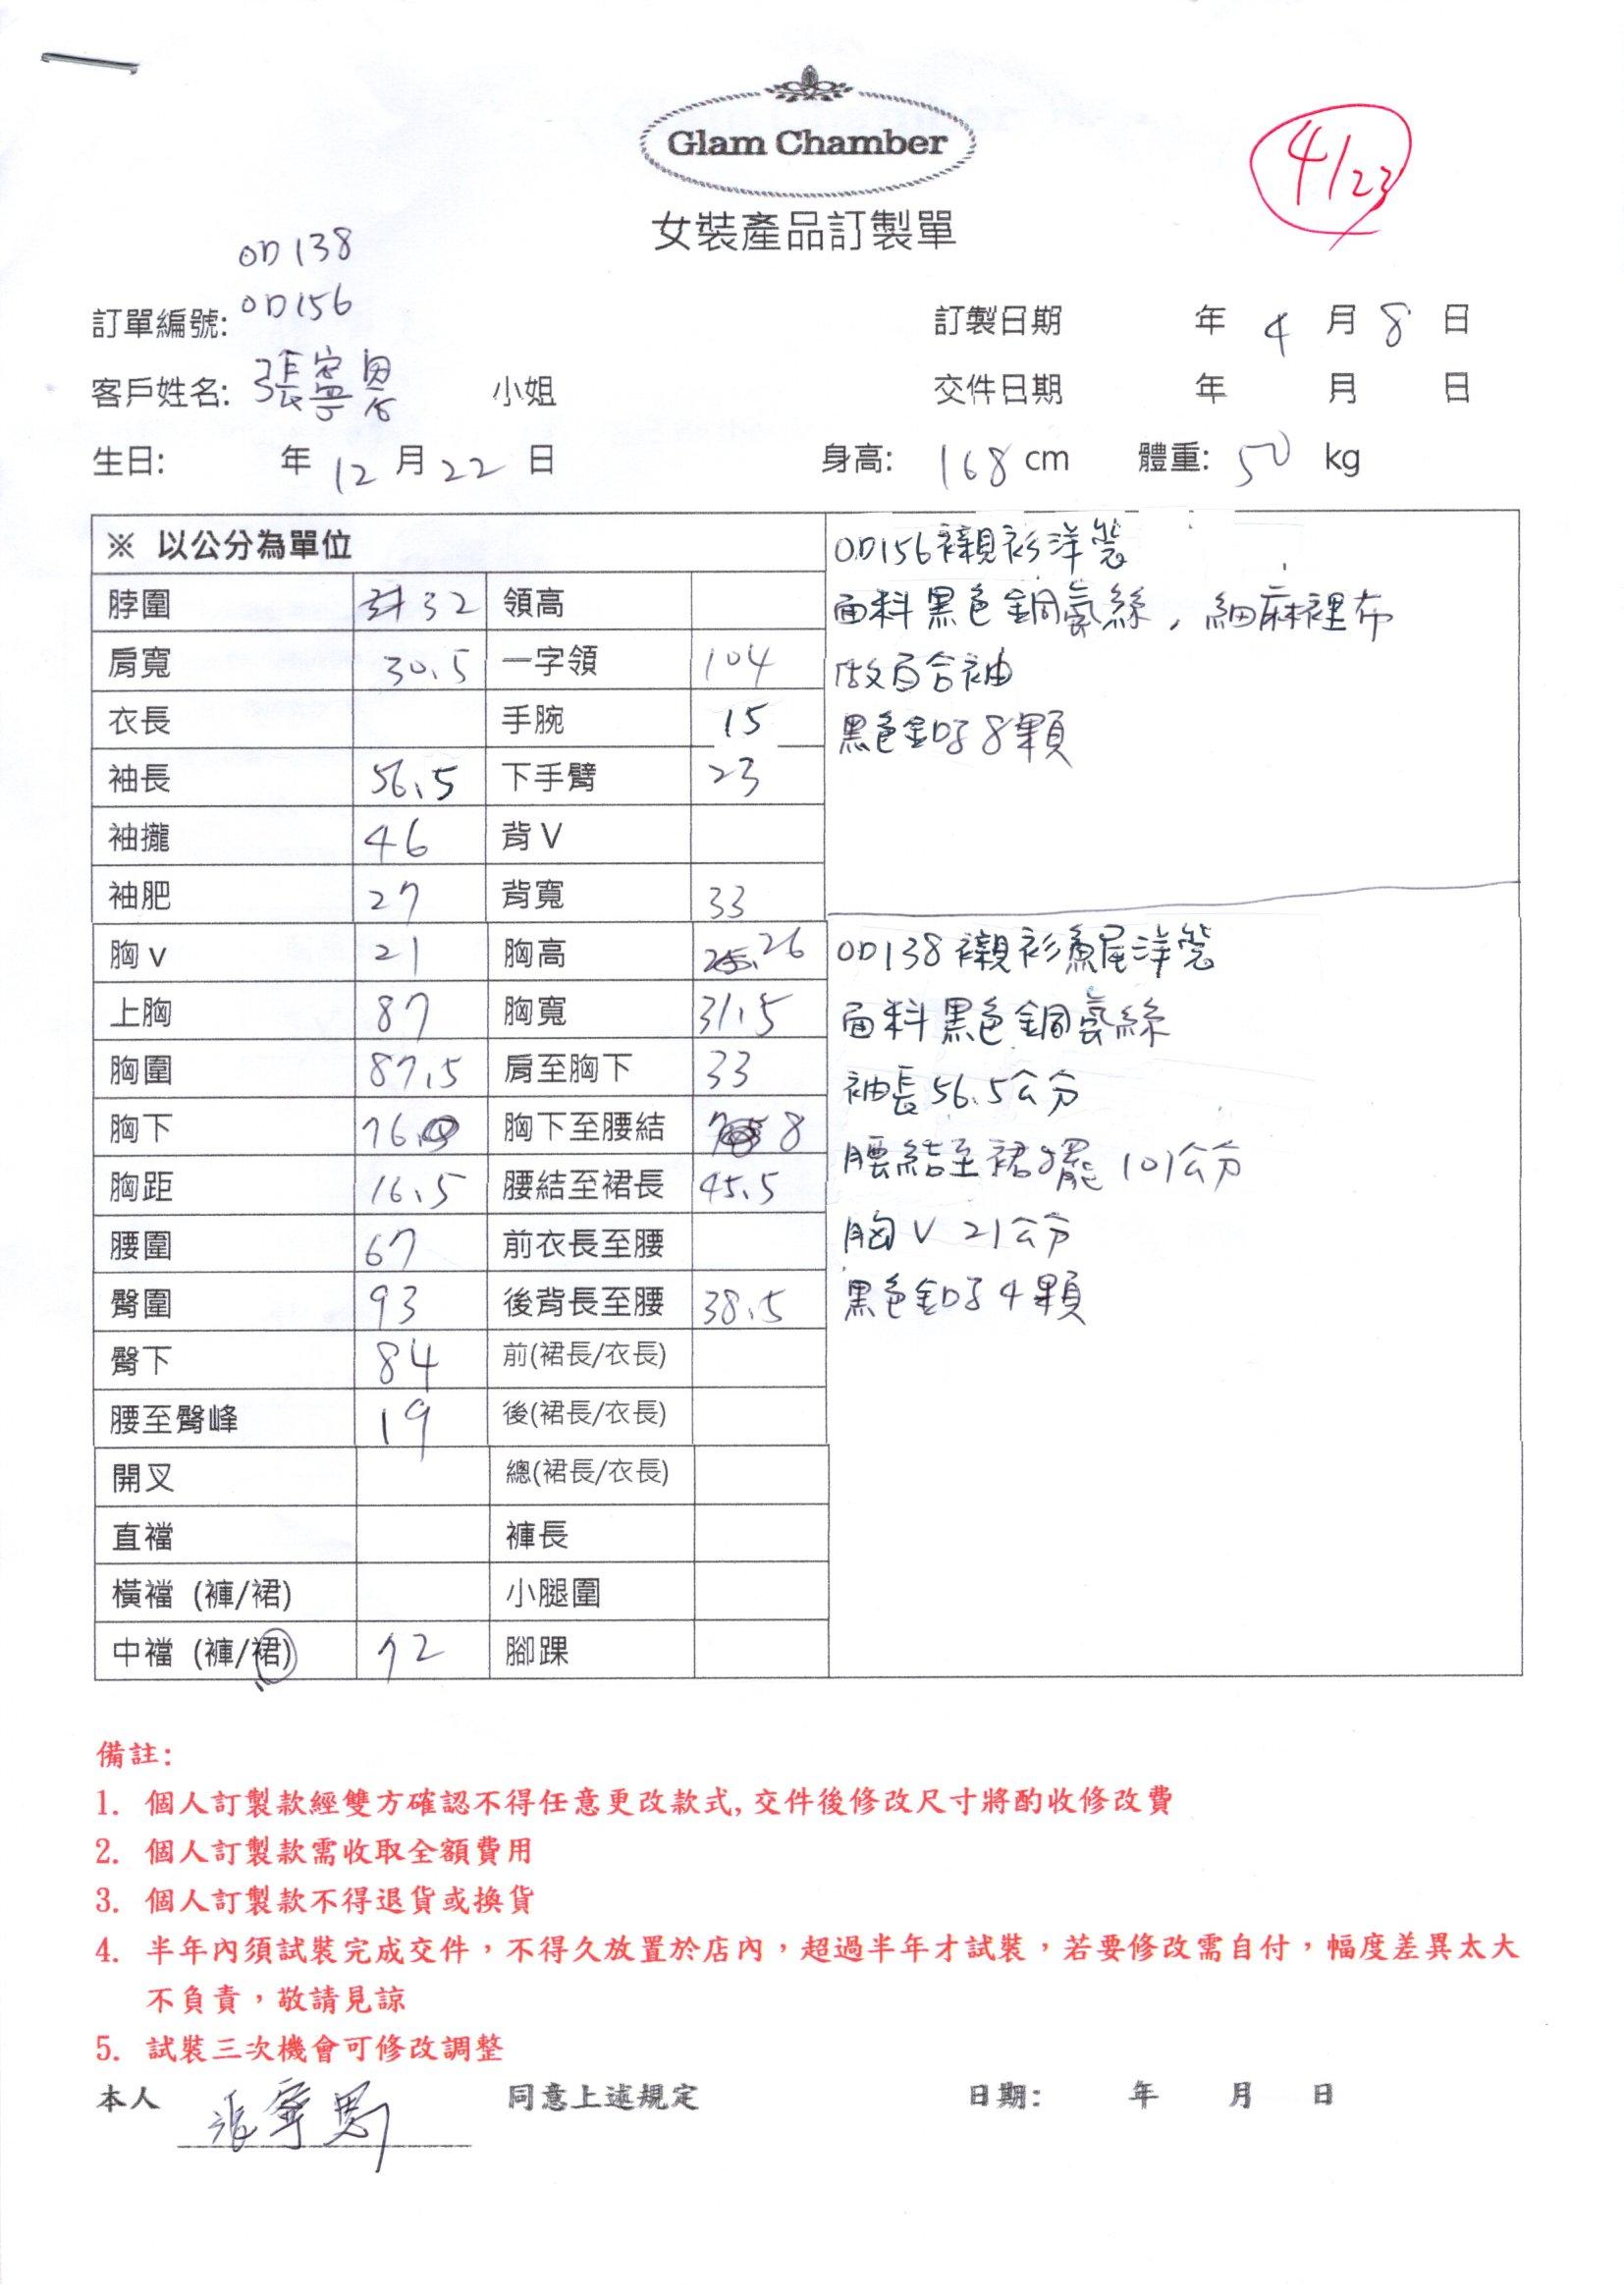 Glam Chamber
4/23
女裝產品訂製單
OD138
訂單編號: OD156
訂製日期 年 4 月 8 日
客戶姓名: 張寧恩 小姐
交件日期 年 月 日
生日: 年 12 月 22 日
身高: 168 cm 體重: 50 kg
※ 以公分為單位
脖圍 32 領高
肩寬 30.5 一字領 104
衣長 手腕 15
袖長 56.5 下手臂 23
袖攏 46 背V
袖肥 27 背寬 33
胸v 21 胸高 26
上胸 87 胸寬 31.5
胸圍 87.5 肩至胸下 33
胸下 76 胸下至腰結 8
胸距 16.5 腰結至裙長 45.5
腰圍 67 前衣長至腰
臀圍 93 後背長至腰 38.5
臀下 84 前(裙長/衣長)
腰至臀峰 19 後(裙長/衣長)
開叉 總(裙長/衣長)
直襠 褲長
橫襠 (褲/裙) 小腿圍
中襠 (褲/裙) 72 腳踝
OD156襯衫洋裝
面料黑色銅氨絲，細麻裡布
做百合袖
黑色釦子8顆
OD138襯衫魚尾洋裝
面料黑色銅氨絲
袖長56.5公分
腰結至裙擺 101公分
胸V 21公分
黑色釦子4顆
備註:
1. 個人訂製款經雙方確認不得任意更改款式, 交件後修改尺寸將酌收修改費
2. 個人訂製款需收取全額費用
3. 個人訂製款不得退貨或換貨
4. 半年內須試裝完成交件，不得久放置於店內，超過半年才試裝，若要修改需自付，幅度差異太大
不負責，敬請見諒
5. 試裝三次機會可修改調整
本人 張寧恩 同意上述規定 日期: 年 月 日